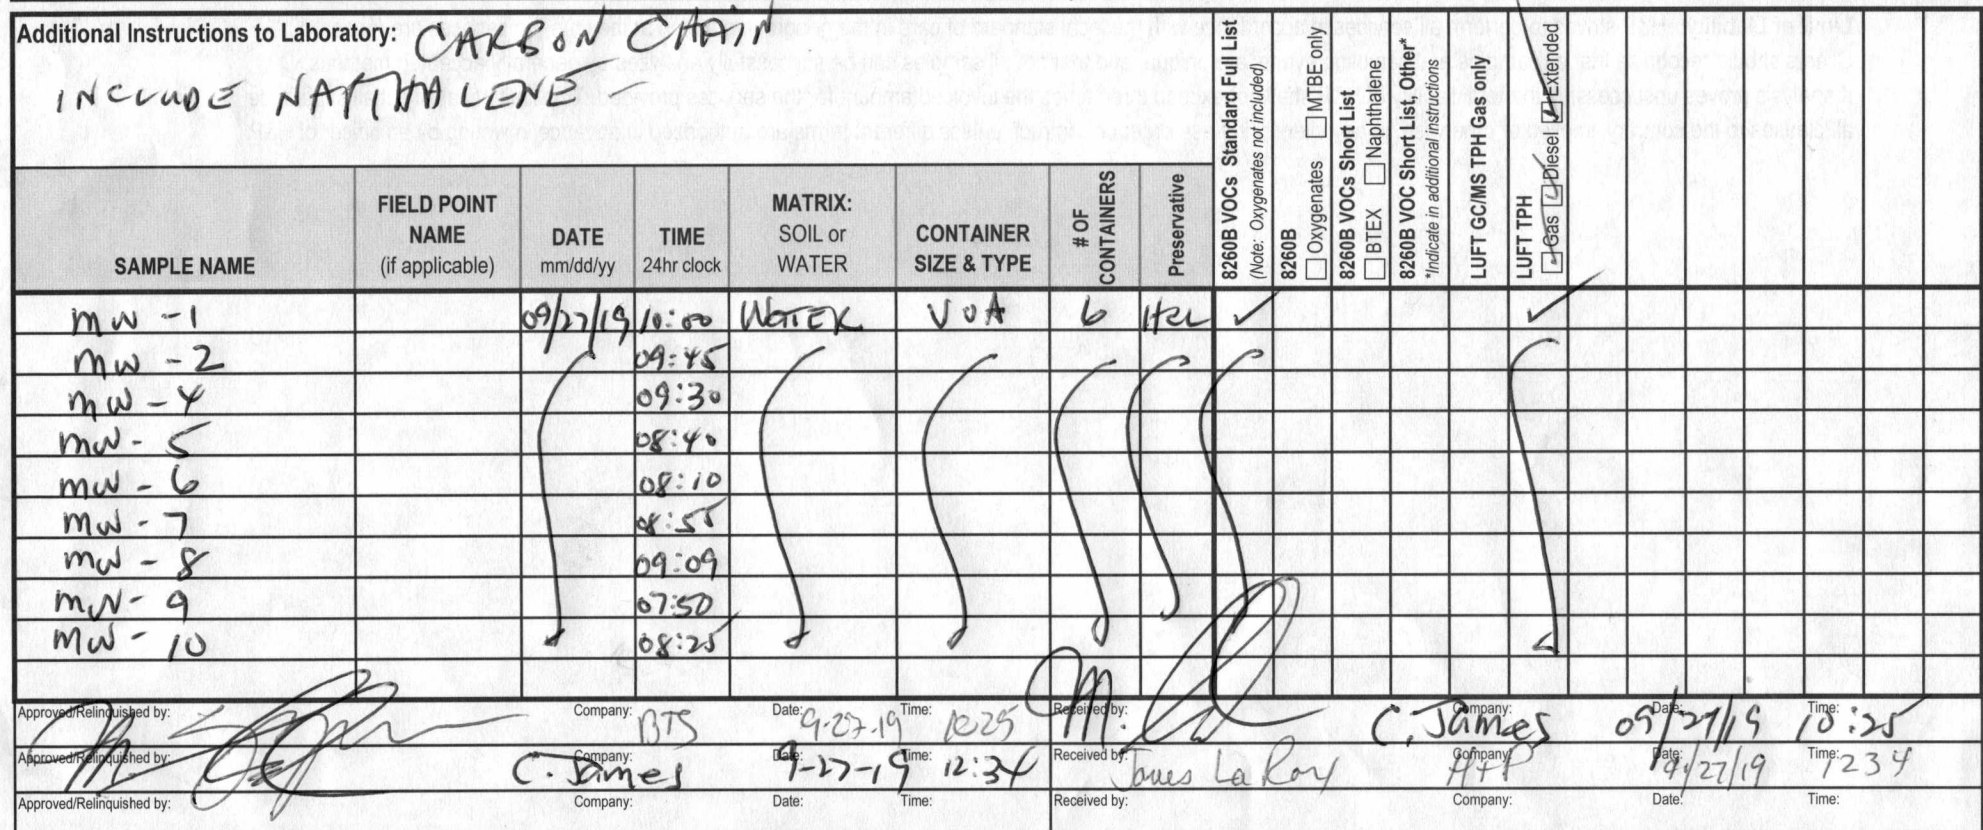 Additional Instructions to Laboratory: CARBON CHAIN
INCLUDE NAPTHALENE
SAMPLE NAME
FIELD POINT
NAME
(if applicable)
DATE
mm/dd/yy
TIME
24hr clock
MATRIX:
SOIL or
WATER
CONTAINER
SIZE & TYPE
# OF
CONTAINERS
Preservative
8260B VOCs Standard Full List
(Note: Oxygenates not included)
8260B
☐ Oxygenates ☐ MTBE only
8260B VOCs Short List
☐ BTEX ☐ Naphthalene
8260B VOC Short List, Other*
*Indicate in additional instructions
LUFT GC/MS TPH Gas only
LUFT TPH
☑ Gas ☑ Diesel ☑ Extended
MW-1 09/27/19 10:00 WATER VOA 6 HCL ✓ ✓
MW-2 09:45
MW-4 09:30
MW-5 08:40
MW-6 08:10
MW-7 08:55
MW-8 09:09
MW-9 07:50
MW-10 08:25
Approved/Relinquished by: Company: BTS Date: 9-27-19 Time: 1025 Received by: Company: C. James Date: 09/27/19 Time: 10:25
Approved/Relinquished by: Company: C. James Date: 9-27-19 Time: 12:34 Received by: Company: Date: 9/27/19 Time: 1234
Approved/Relinquished by: Company: Date: Time: Received by: Company: Date: Time: